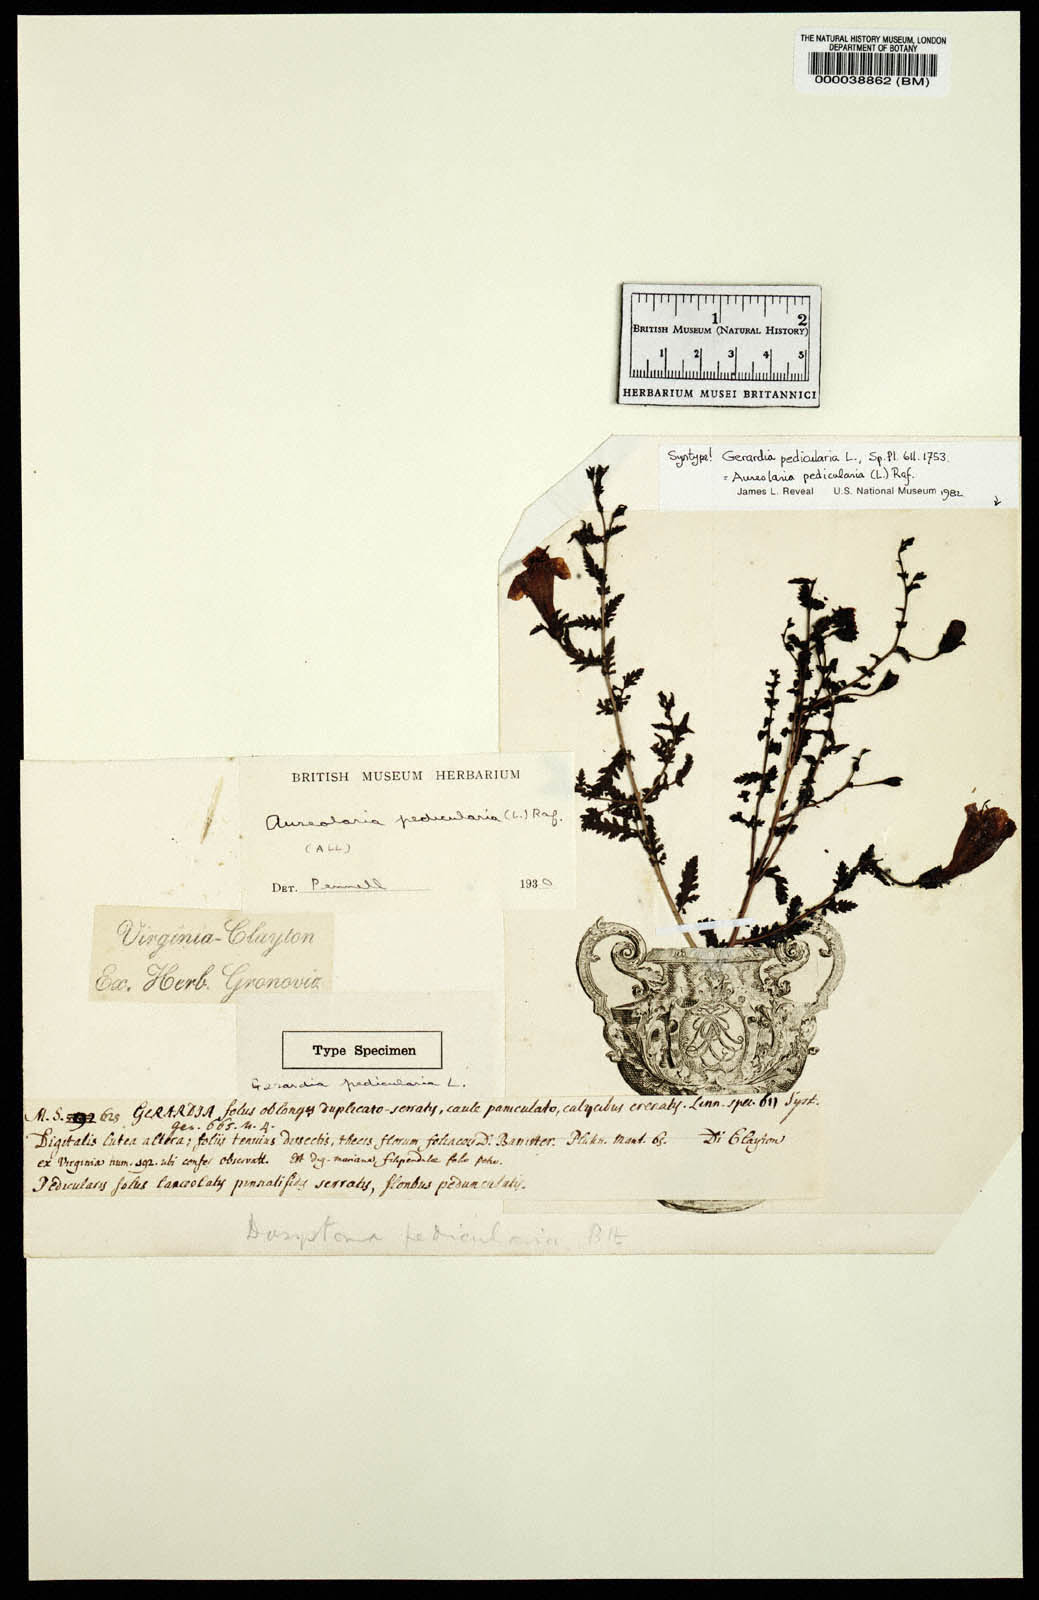 THE NATURAL HISTORY MUSEUM, LONDON
DEPARTMENT OF BOTANY
000038862 (BM)
1 2
BRITISH MUSEUM (NATURAL HISTORY)
1 2 3 4 5
HERBARIUM MUSEI BRITANNICI
Syntype! Gerardia pedicularia L., Sp. Pl. 611. 1753.
= Aureolaria pedicularia (L.) Raf.
James L. Reveal U.S. National Museum 1982
BRITISH MUSEUM HERBARIUM
Aureolaria pedicularia (L.) Raf.
(ALL)
DET. Pennell 1930
Virginia-Clayton
Ex. Herb. Gronovii
Type Specimen
Gerardia pedicularia L.
M. S. 623 GERARDIA foliis oblongis duplicato-serratis, caule paniculato, calycibus crenatis. Linn. spec. 611 Syst.
gen. 665. n. 4.
Digitalis lutea altera; foliis tenuius dissectis, thecis florum foliaceis D. Banister. Plukn. Mant. 64. Di Clayton
ex Virginia num. 592. ubi confer observatt. et Dig. mariana filipendulae folio Petiv.
Pedicularis foliis lanceolatis pinnatifidis serratis, floribus pedunculatis.
Dasystoma pedicularia Bth